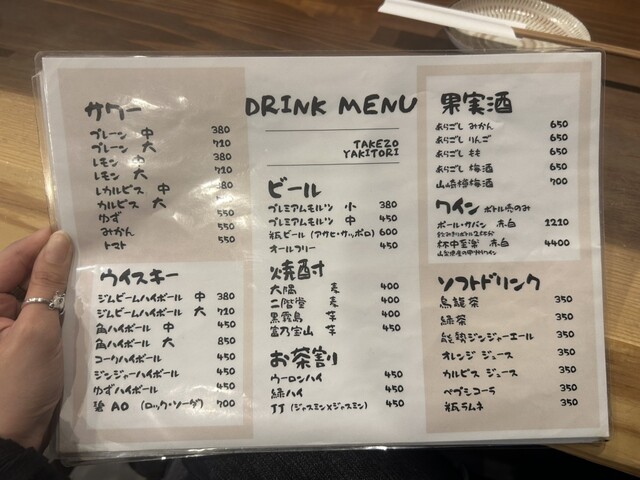 DRINK MENU
TAKEZO
YAKITORI
サワー
プレーン 中 380
プレーン 大 710
レモン 中 380
レモン 大 710
カルピス 中 380
カルピス 大
ゆず 550
みかん 550
トマト 550
ウイスキー
ジムビームハイボール 中 380
ジムビームハイボール 大 710
角ハイボール 中 450
角ハイボール 大 850
コークハイボール 450
ジンジャーハイボール 450
ゆずハイボール 450
碧 AO (ロック・ソーダ) 700
ビール
プレミアムモルツ 小 380
プレミアムモルツ 中 450
瓶ビール (アサヒ・サッポロ) 600
オールフリー 450
焼酎
大隅 麦 400
二階堂 麦 400
黒霧島 芋 400
富乃宝山 芋 450
お茶割
ウーロンハイ 450
緑ハイ 450
JJ (ジャスミン×ジャスミン) 450
果実酒
あらごし みかん 650
あらごし りんご 650
あらごし もも 650
あらごし 梅酒 650
山崎樽梅酒 700
ワイン ボトル売のみ
ポール・クバン 赤・白 2210
杯中至楽 赤・白 4400
ソフトドリンク
烏龍茶 350
緑茶 350
能勢ジンジャーエール 350
オレンジ ジュース 350
カルピス ジュース 350
ペプシコーラ 350
瓶ラムネ 350